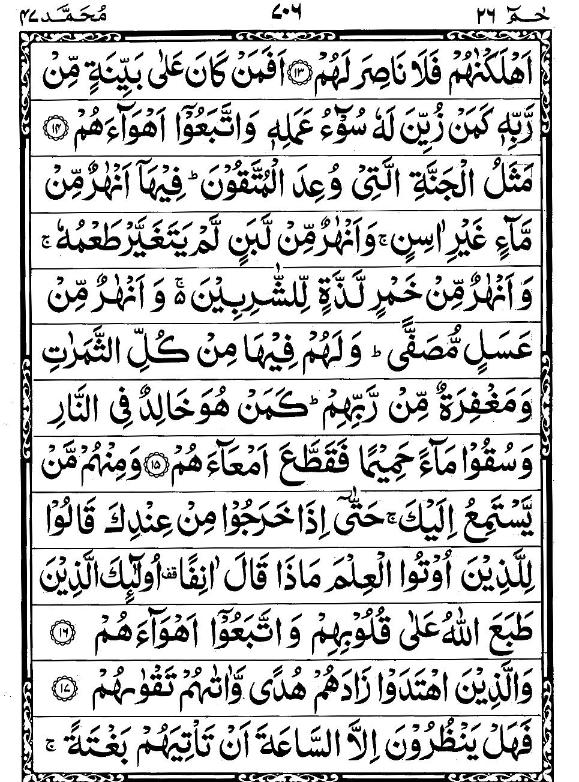 حٰمٓ ٢٦ ٧٠٦ مُحَمَّد ٤٧
اَهْلَكْنٰهُمْ فَلَا نَاصِرَ لَهُمْ ۝١٣ اَفَمَنْ كَانَ عَلٰى بَيِّنَةٍ مِّنْ
رَّبِّهٖ كَمَنْ زُيِّنَ لَهٗ سُوْٓءُ عَمَلِهٖ وَاتَّبَعُوْٓا اَهْوَآءَهُمْ ۝١٤
مَثَلُ الْجَنَّةِ الَّتِىْ وُعِدَ الْمُتَّقُوْنَ ؕ فِيْهَآ اَنْهٰرٌ مِّنْ
مَّآءٍ غَيْرِ اٰسِنٍ ۚ وَاَنْهٰرٌ مِّنْ لَّبَنٍ لَّمْ يَتَغَيَّرْ طَعْمُهٗ ۚ
وَاَنْهٰرٌ مِّنْ خَمْرٍ لَّذَّةٍ لِّلشّٰرِبِيْنَ ۵ۚ وَاَنْهٰرٌ مِّنْ
عَسَلٍ مُّصَفًّى ؕ وَلَهُمْ فِيْهَا مِنْ كُلِّ الثَّمَرٰتِ
وَمَغْفِرَةٌ مِّنْ رَّبِّهِمْ ؕ كَمَنْ هُوَ خَالِدٌ فِى النَّارِ
وَسُقُوْا مَآءً حَمِيْمًا فَقَطَّعَ اَمْعَآءَهُمْ ۝١٥ وَمِنْهُمْ مَّنْ
يَّسْتَمِعُ اِلَيْكَ ۚ حَتّٰىٓ اِذَا خَرَجُوْا مِنْ عِنْدِكَ قَالُوْا
لِلَّذِيْنَ اُوْتُوا الْعِلْمَ مَاذَا قَالَ اٰنِفًا قف اُولٰٓئِكَ الَّذِيْنَ
طَبَعَ اللّٰهُ عَلٰى قُلُوْبِهِمْ وَاتَّبَعُوْٓا اَهْوَآءَهُمْ ۝١٦
وَالَّذِيْنَ اهْتَدَوْا زَادَهُمْ هُدًى وَّاٰتٰىهُمْ تَقْوٰىهُمْ ۝١٧
فَهَلْ يَنْظُرُوْنَ اِلَّا السَّاعَةَ اَنْ تَاْتِيَهُمْ بَغْتَةً ۚ